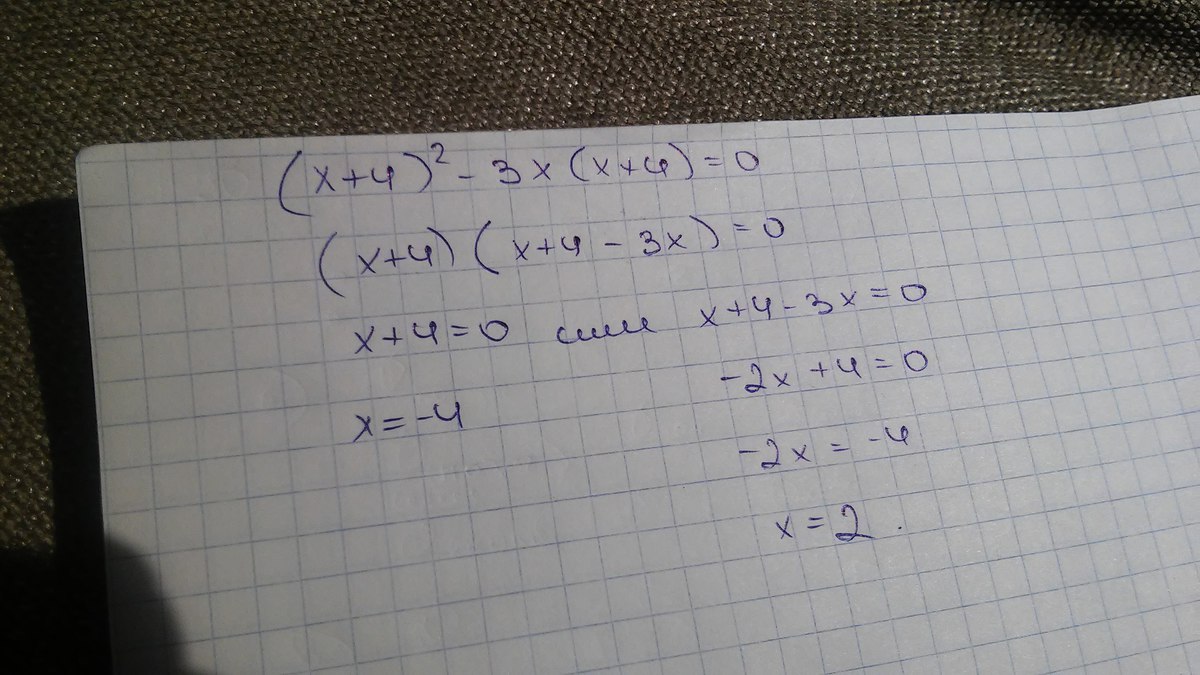 (x+4)² - 3x(x+4) = 0
(x+4)(x+4 - 3x) = 0
x+4=0 или x+4-3x=0
-2x+4=0
x=-4
-2x = -4
x=2.